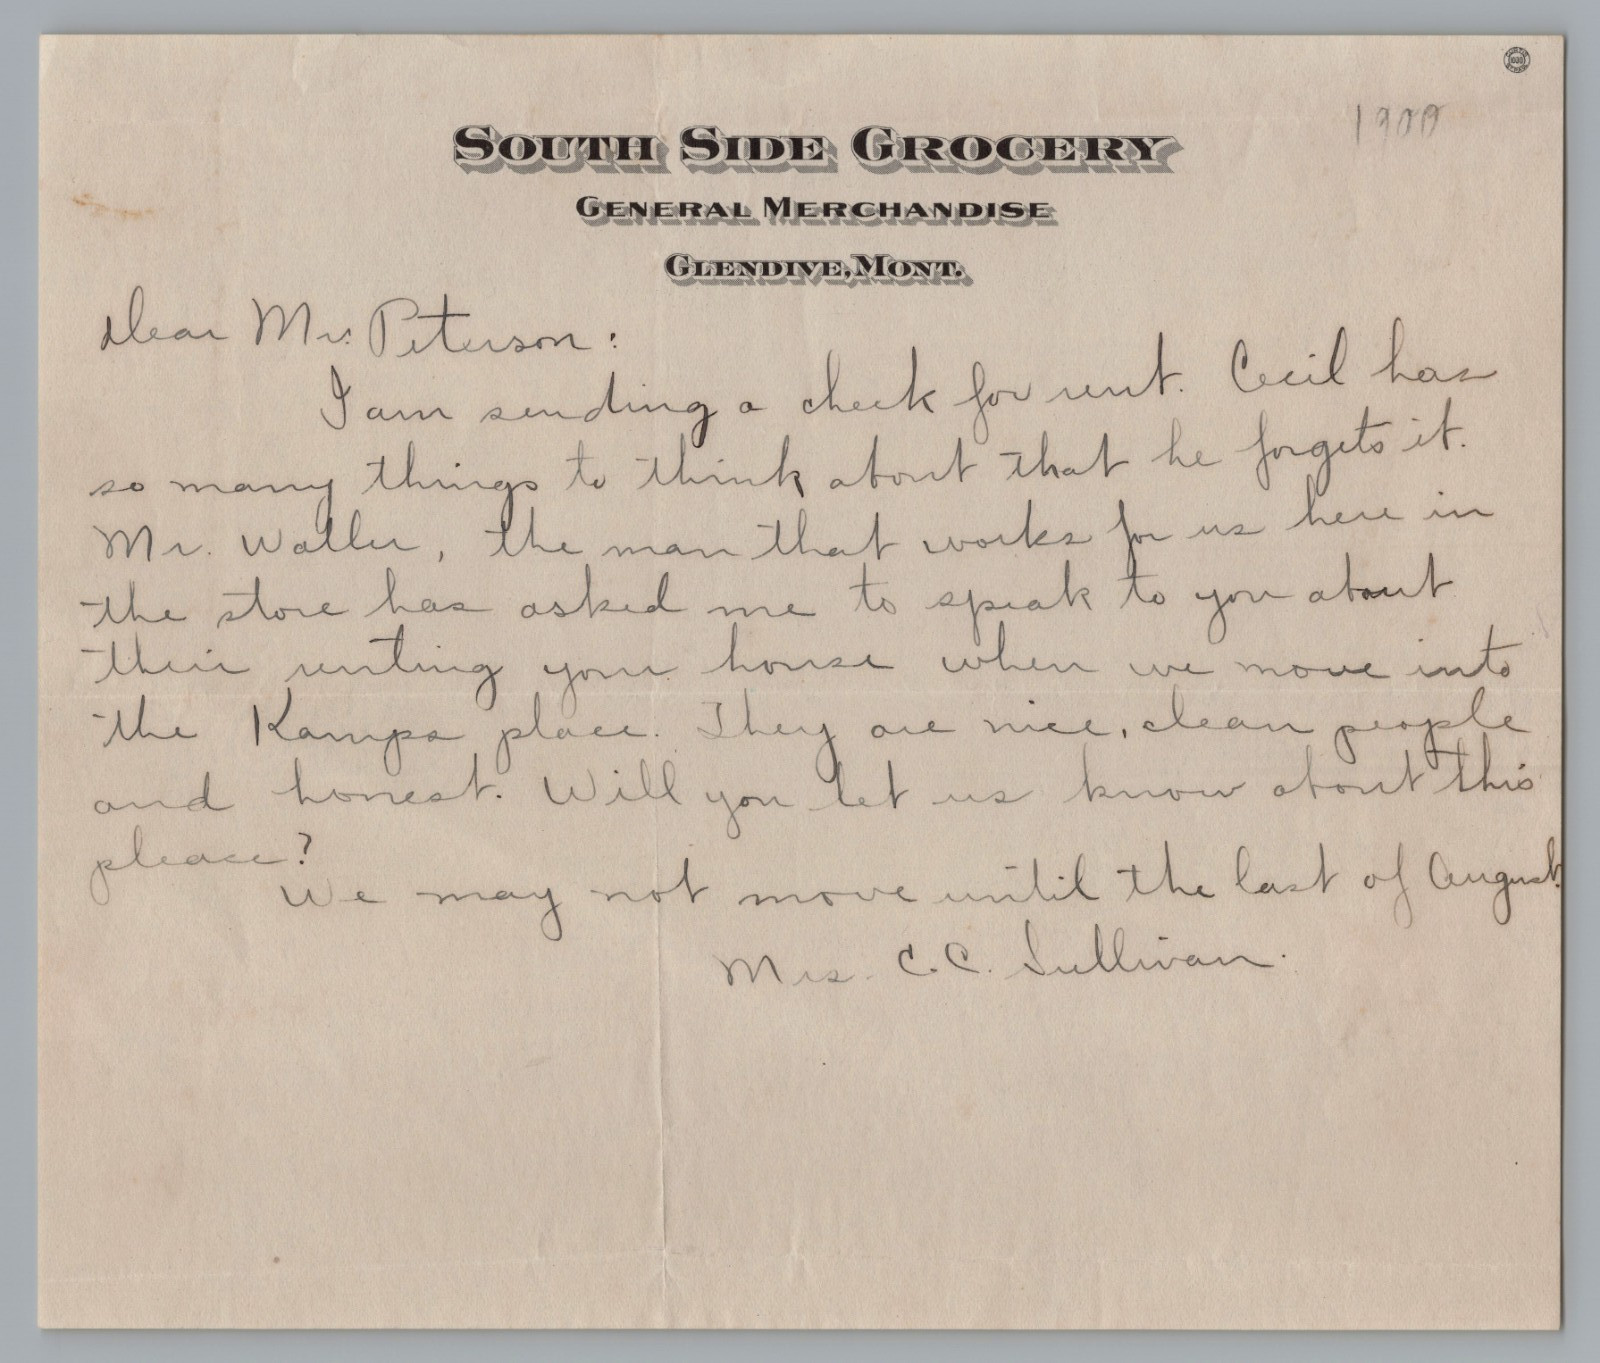 1900
SOUTH SIDE GROCERY
GENERAL MERCHANDISE
GLENDIVE, MONT.
Dear Mr. Peterson:
I am sending a check for rent. Cecil has
so many things to think about that he forgets it.
Mr. Waller, the man that works for us here in
the store has asked me to speak to you about
their renting your house when we move into
the Kamps place. They are nice, clean people
and honest. Will you let us know about this
please?
We may not move until the last of August.
Mrs. C. C. Sullivan.